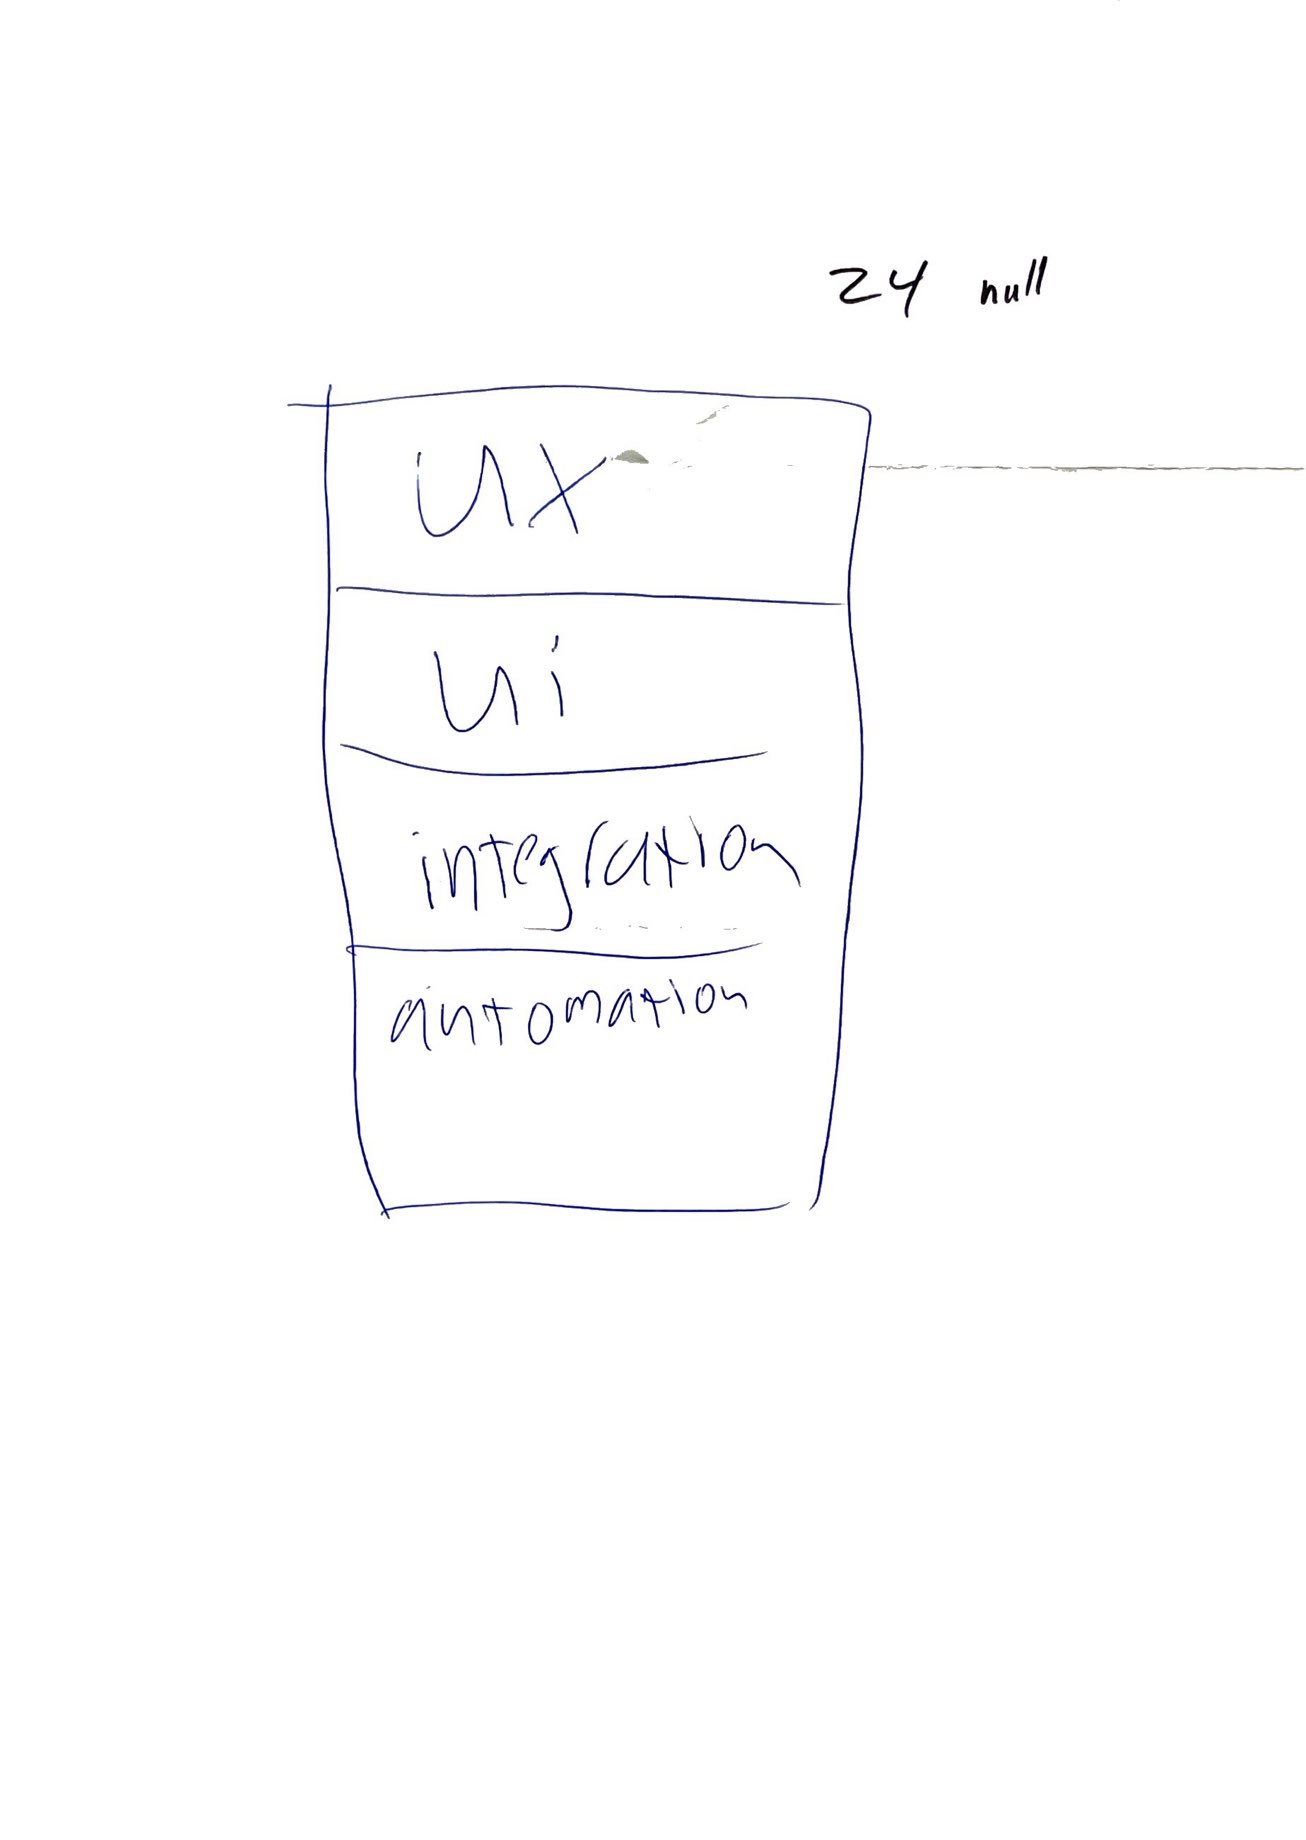 24 null
UX
Ui
integration
automation